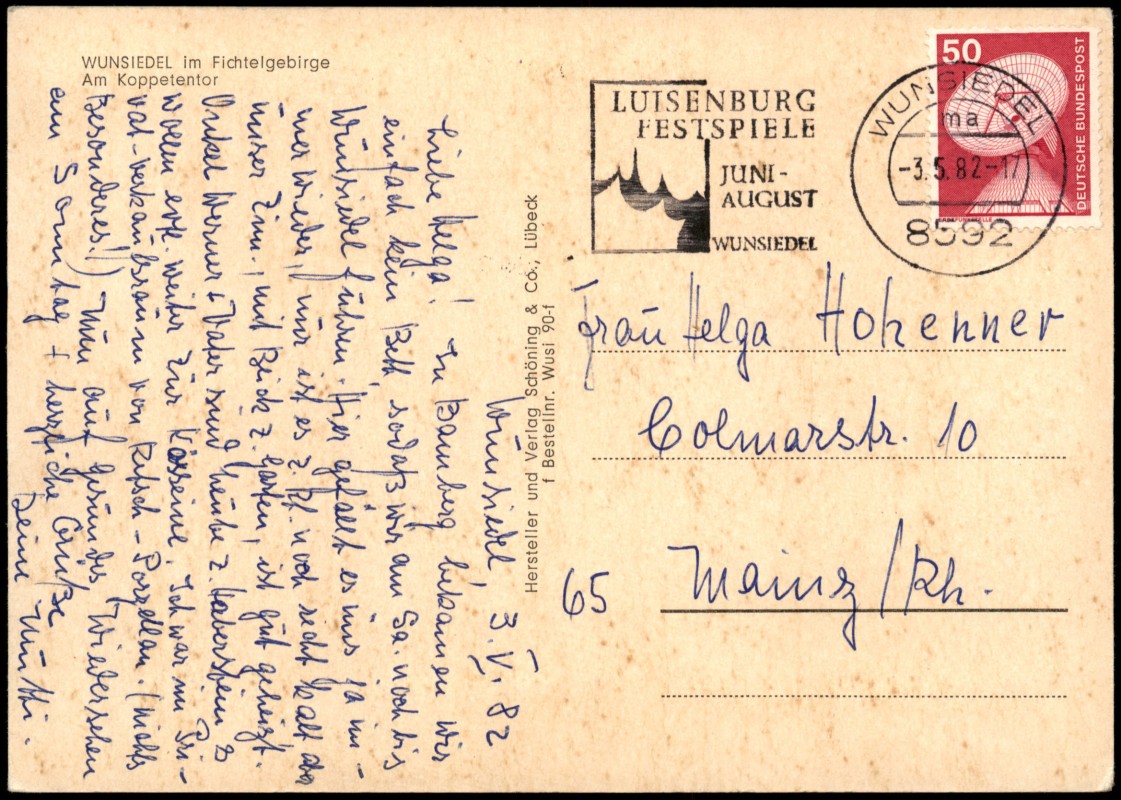 WUNSIEDEL im Fichtelgebirge
Am Koppetentor
Wunsiedel, 3.V.82
Liebe Helga! In Bamberg bekamen wir
einfach kein Bett, sodaß wir am Sa. noch bis
Wunsiedel fuhren. Hier gefällt es uns ja im-
mer wieder, nur ist es z. Zt. noch recht kalt aber
unser Zim., mit Blick z. Garten, ist gut geheizt.
Onkel Werner + Vater sind heute z. Haberstein u.
wollen evt. weiter zur Kösseine. Ich war im Pri-
vat-verkaufsraum von Kitsch-Porzellan. (nichts
Besonderes!) Nun auf gesundes Wiedersehen
am Sonntag + herzliche Grüße
Deine Mutti.
Hersteller und Verlag Schöning & Co., Lübeck
f Bestellnr. Wusi 90-f
LUISENBURG
FESTSPIELE
JUNI-
AUGUST
WUNSIEDEL
WUNSIEDEL
ma
-3.5.82-17
8592
50
DEUTSCHE BUNDESPOST
Frau Helga Hohenner
Colmarstr. 10
65 Mainz/Rh.